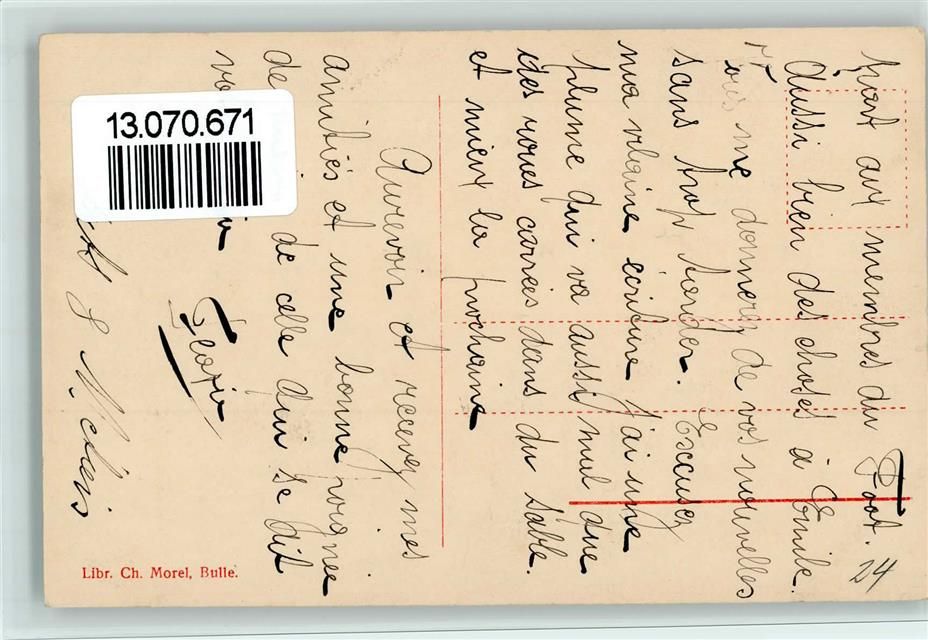 part aux membres du Foot.
Aussi bien des choses à Emile.
Vous me donnerez de vos nouvelles
sans trop tarder. Excusez
ma vilaine écriture j'ai une
plume qui va aussi mal que
des roues carrées dans du sable.
et mieux la prochaine
Aurevoir et recevez mes
amitiés et une bonne poignée
de de celle qui se dit
24
13.070.671
Libr. Ch. Morel, Bulle.